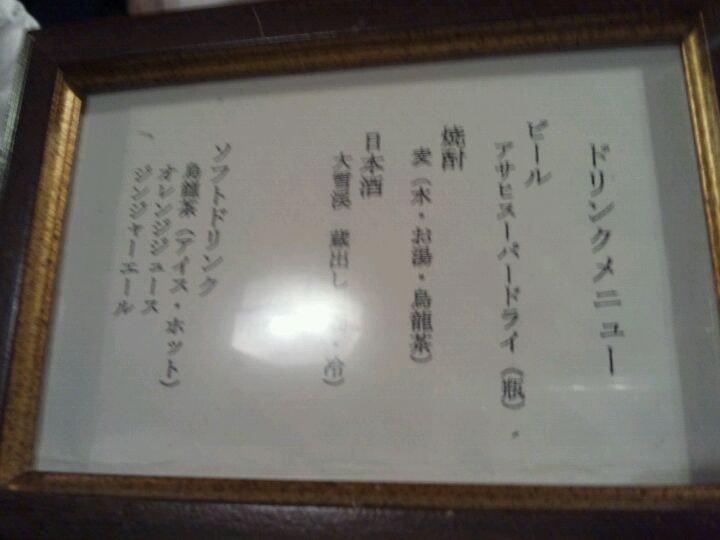 ドリンクメニュー
ビール
アサヒスーパードライ（瓶）
焼酎
麦（水・お湯・烏龍茶）
日本酒
大雪渓 蔵出し ・冷）
ソフトドリンク
烏龍茶（アイス・ホット）
オレンジジュース
ジンジャーエール